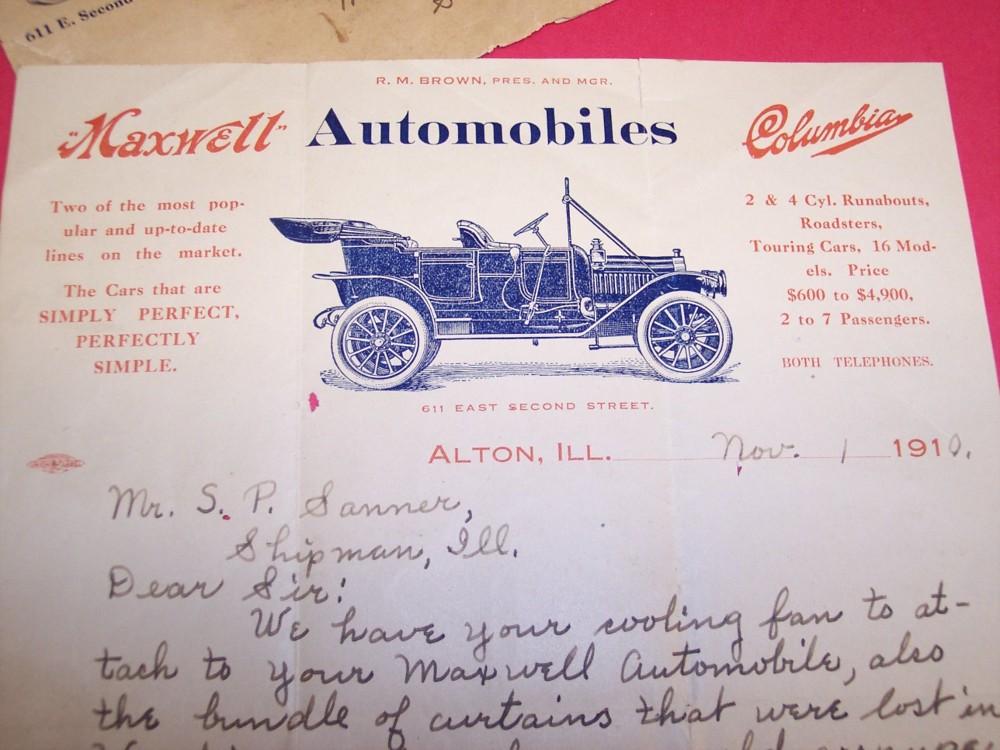 611 E. Second
R. M. BROWN, PRES. AND MGR.
"Maxwell" Automobiles Columbia
Two of the most pop-
ular and up-to-date
lines on the market.
The Cars that are
SIMPLY PERFECT,
PERFECTLY
SIMPLE.
2 & 4 Cyl. Runabouts,
Roadsters,
Touring Cars, 16 Mod-
els. Price
$600 to $4,900,
2 to 7 Passengers.
BOTH TELEPHONES.
611 EAST SECOND STREET.
ALTON, ILL. Nov. 1 1910.
Mr. S. P. Sanner,
Shipman, Ill.
Dear Sir:
We have your cooling fan to at-
tach to your Maxwell Automobile, also
the bundle of curtains that were lost in